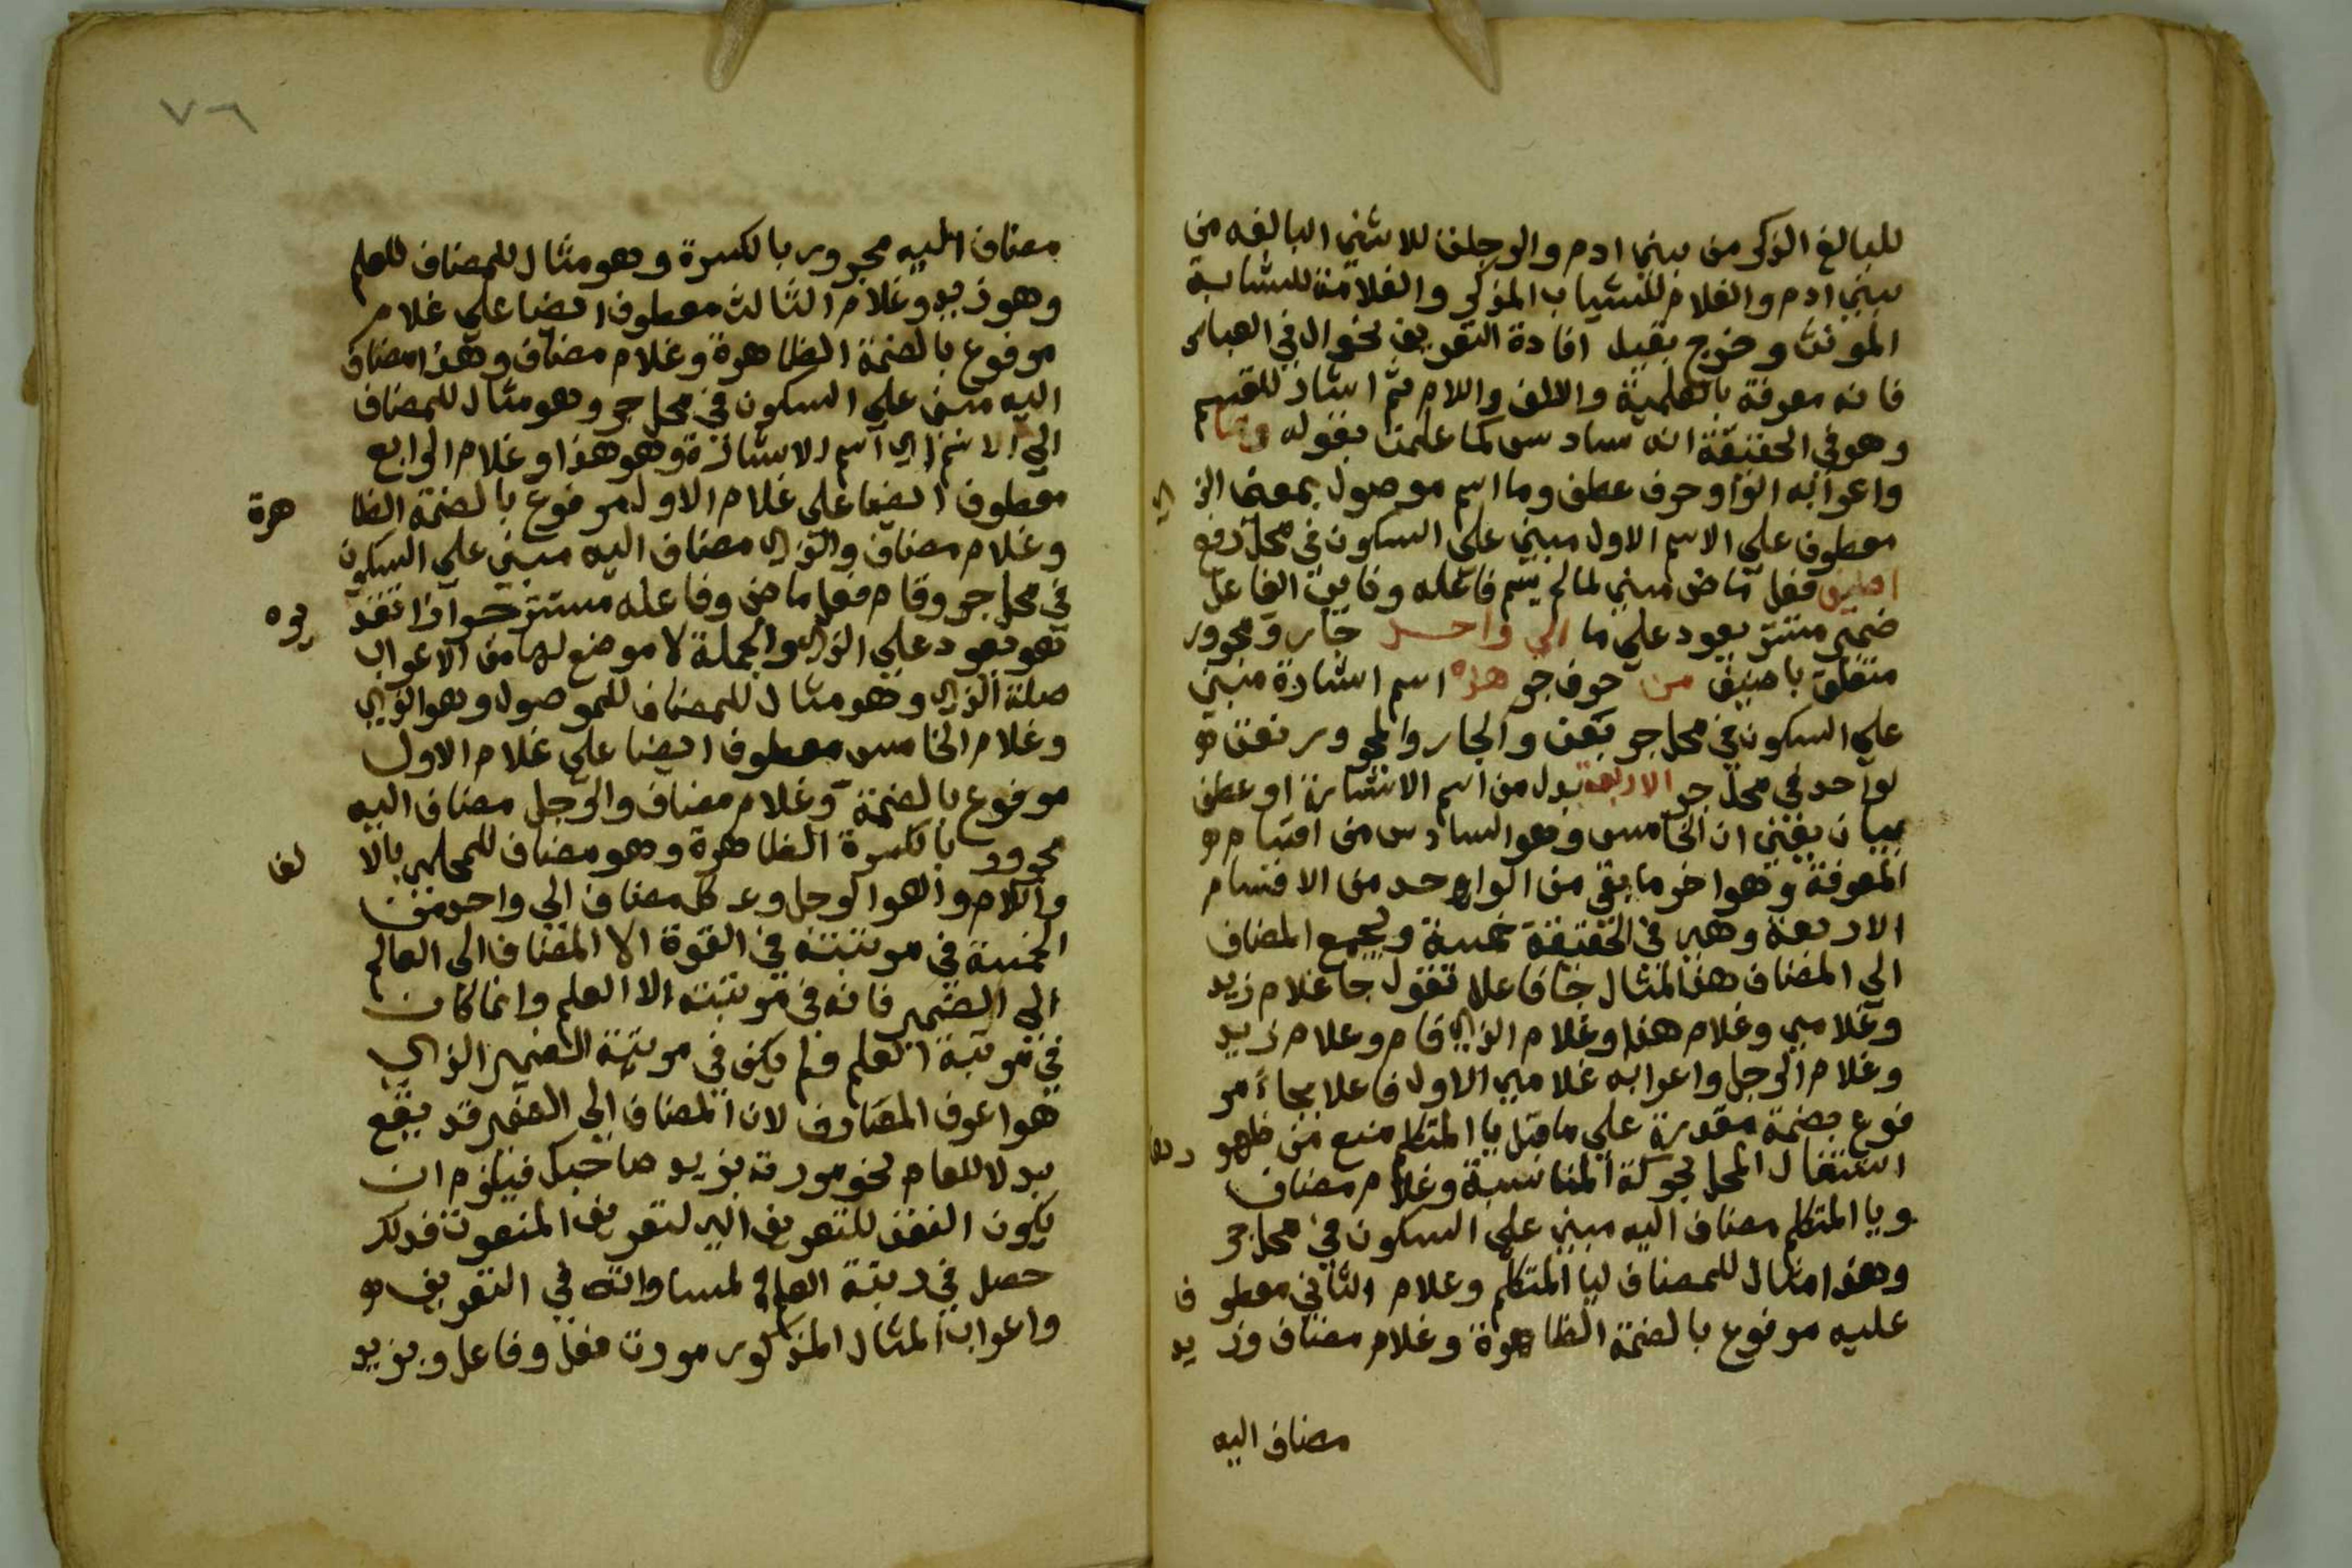 للبالغ الذكر من بني ادم والرجلة للانثي البالغه من
بني ادم والغلام للشاب المذكر والغلامة للشابة
المؤنث وخرج بقيل افادة التعريف نحو ال في العباس
فانه معرفة بالعلمية والالف واللام ثم اشار للقسم
وهو في الحقيقة انه سادس كما علمت بقوله وما
واعرابه الواو حرف عطف وما اسم موصول بمعنى الذي
معطوف علي الاسم الاول مبني علي السكون في محل رفع
اضيف فعل ماض مبني لما لم يسم فاعله ونايب الفاعل
ضمير مستتر يعود على ما الي واحد جار ومجرور
متعلق باضيف من حرف جر هذه اسم اشارة مبني
علي السكون في محل جر بمن والجار والمجرور نعت
لواحد في محل جر الاربعة بدل من اسم الاشارة او عطف
بيان يعني ان الخامس وهو السادس من اقسام
المعرفة وهو اخر ما بقي من الواحد من الاقسام
الاربعة وهي في الحقيقة خمسة ويجمع المضاف
الي المضاف هذا المثال جا فاعلا تقول جا غلام زيد
وغلامي وغلام هذا وغلام الذي قام وغلام زيد
وغلام الرجل واعرابه غلامي الاول فاعلا بجاء مر
فوع بضمة مقدرة علي ما قبل يا المتكلم منع من ظهو رها
اشتغال المحل بحركة المناسبة وغلام مضاف
ويا المتكلم مضاف اليه مبني علي السكون في محل جر
وهذا مثال للمضاف ليا المتكلم وغلام الثاني معطو ف
عليه مرفوع بالضمة الظاهرة وغلام مضاف وز يد
مضاف اليه
٧٦
مضاف اليه مجرور بالكسرة وهو مثال للمضاف للعلم
وهو زيد وغلام الثالث معطوف ايضا علي غلام
مرفوع بالضمة الظاهرة وغلام مضاف وهذا مضاف
اليه مبني علي السكون في محل جر وهو مثال للمضاف
الي الاسم اي اسم الاشارة وهو هذا وغلام الرابع
معطوف ايضا علي غلام الاول مرفوع بالضمة الظا هرة
وغلام مضاف والذي مضاف اليه مبني علي السكون
في محل جر وقام فعل ماض وفاعله مستتر جوازا تقد يره
هو يعود علي الذي والجملة لا موضع لها من الاعراب
صلة الذي وهو مثال للمضاف للموصول وهو الذي
وغلام الخامس معطوف ايضا علي غلام الاول
مرفوع بالضمة وغلام مضاف والرجل مضاف اليه
مجرور بالكسرة الظاهرة وهو مضاف للمحلي بالا لف
واللام والهو الرجل و كل مضاف الي واحد من
الخمسة في مرتبته في القوة الا المضاف الي العالم
الي الضمير فانه في مرتبته الا العلم وانما كان
في مرتبة العلم ولم يكن في مرتبة الضمير الذي
هو اعرف المعارف لان المضاف الي الضمير قد يقع
بدلا للعام نحو مررت بزيد صاحبك فيلزم ان
يكون النعت للتعريف الي لتعريف المنعوت فذلك
حصل في رتبة العلم لمساواته في التعريف
واعراب المثال المذكور مررت فعل وفاعل وبزيد